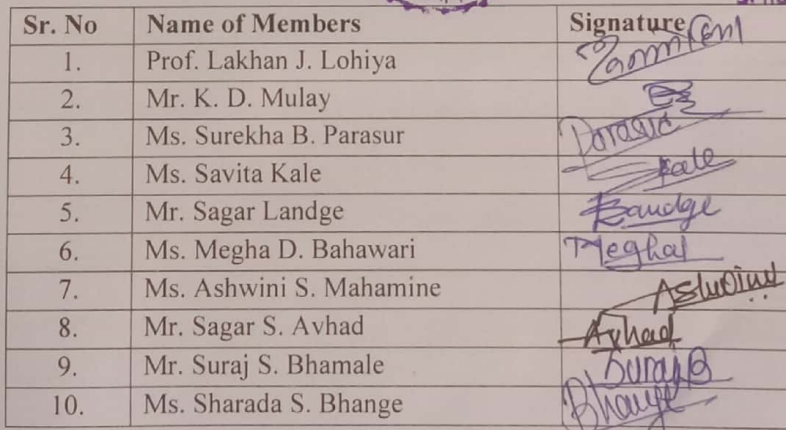 Sr. No Name of Members Signature
1. Prof. Lakhan J. Lohiya
2. Mr. K. D. Mulay
3. Ms. Surekha B. Parasur Parasur
4. Ms. Savita Kale Skale
5. Mr. Sagar Landge Landge
6. Ms. Megha D. Bahawari Megha
7. Ms. Ashwini S. Mahamine Ashwini
8. Mr. Sagar S. Avhad Avhad
9. Mr. Suraj S. Bhamale Suraj B
10. Ms. Sharada S. Bhange Bhange